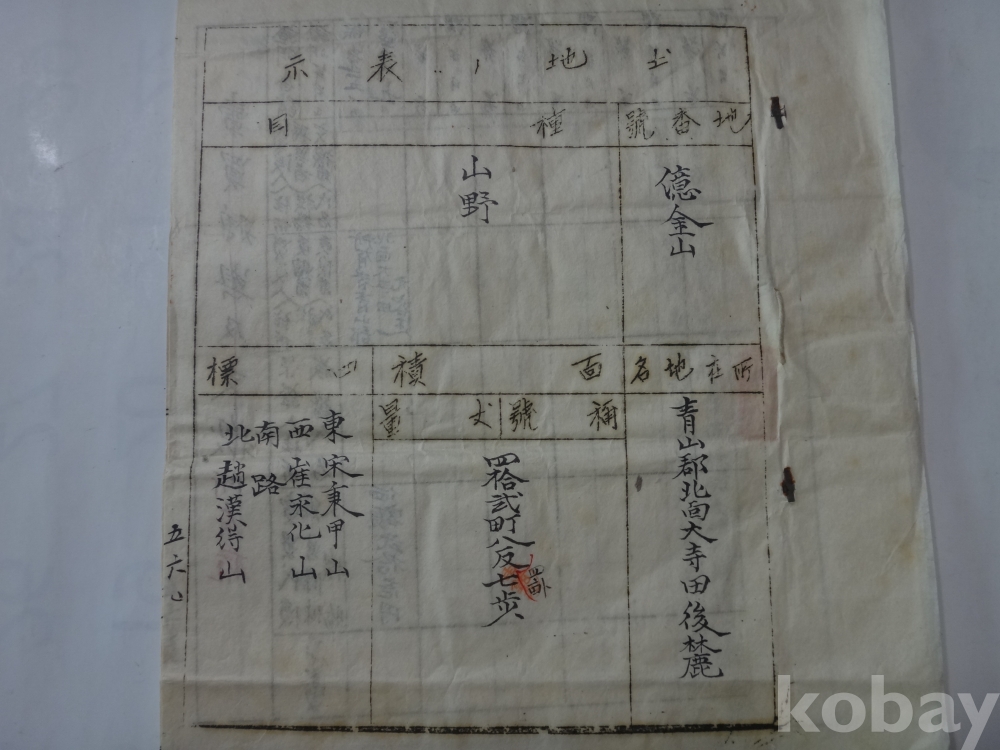 土地ノ表示
地番號
種目
億金山
山野
所在地名
面積
四標
稱號
丈量
青山郡北面大寺田後麓
四拾弐町八反七步
東宋秉甲山
西崔永化山
南路
北趙漢得山
五六
kobay